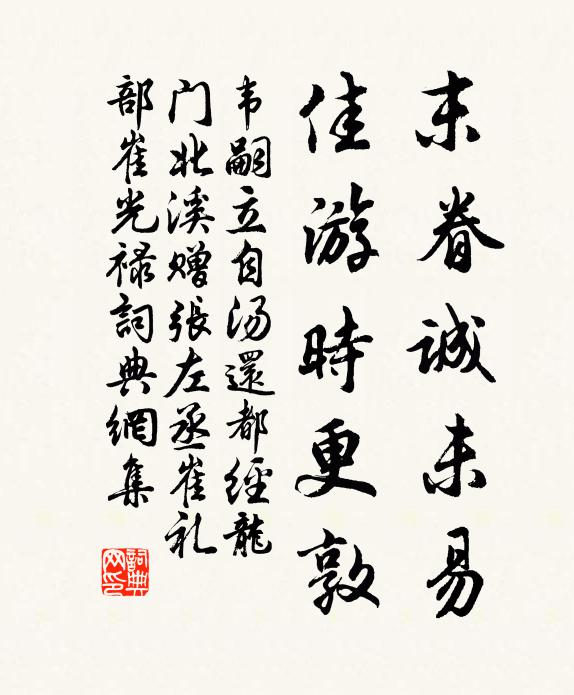 末眷誠未易
佳游時更敦
韦嗣立自汤還都經龍
门北溪赠張左丞崔礼
部崔光禄詞典網集
詞典网印